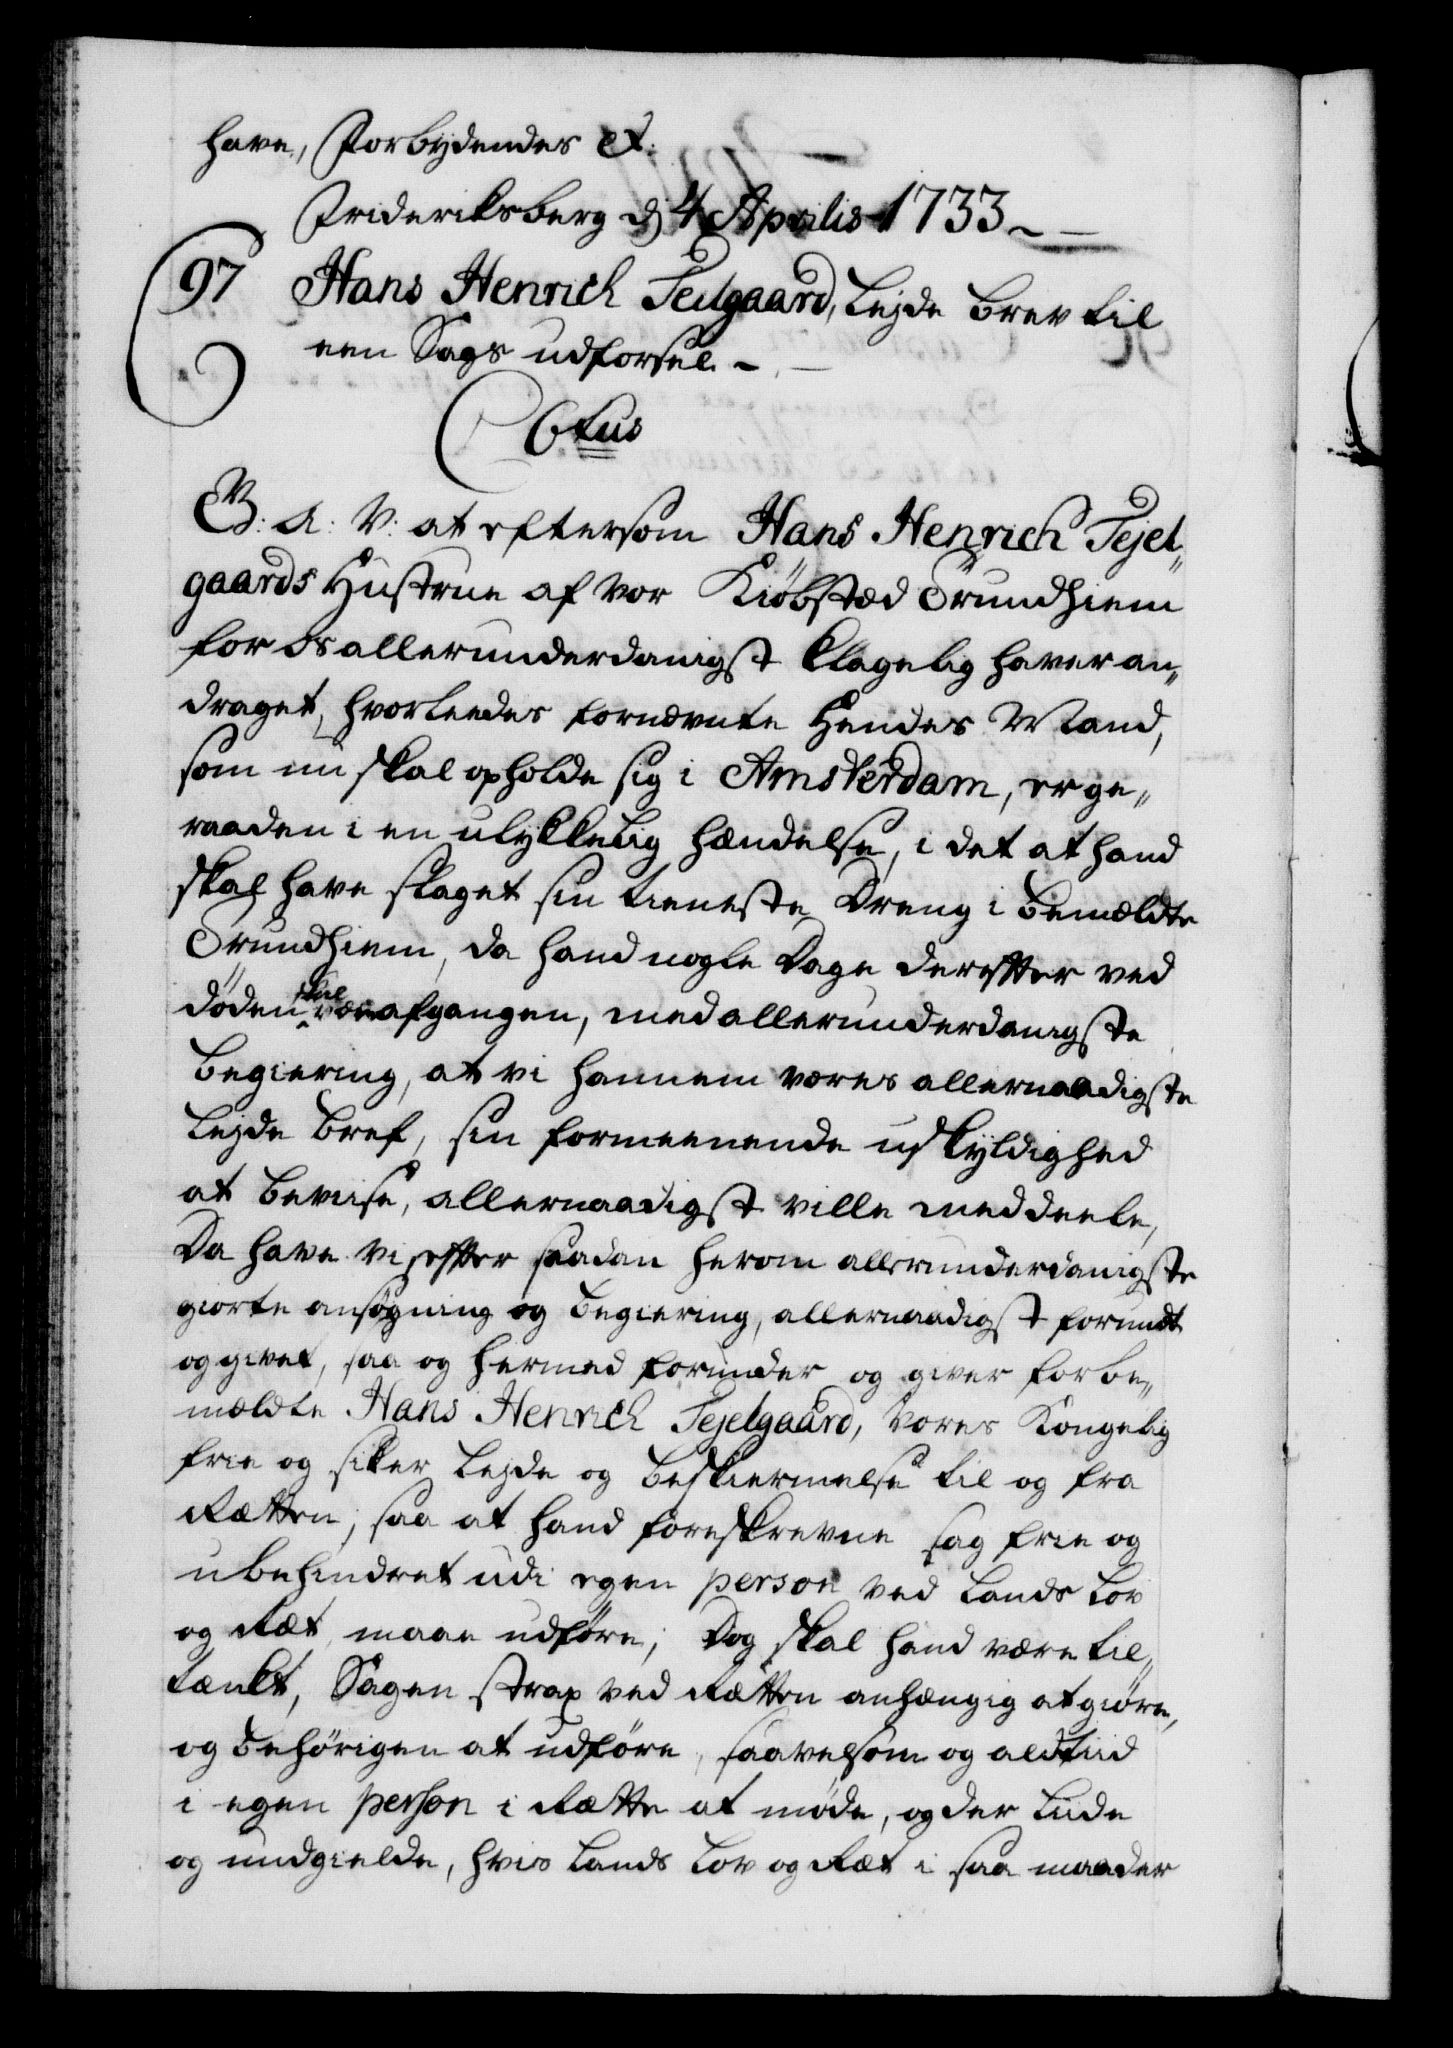 have, Forbydendes &c.
Frideriksberg d 4 Aprilis 1733
97 Hans Henrich Teilgaard, Lejde brev til
een Sags udførsel.
C 6tus
G: A: V: at eftersom Hans Henrich Tejel„
gaards Hustrue af vor Kiøbstæd Trundhiem
for os allerunderdanigst klagelig haver an„
draget, hvorleedes fornævnte Hendes Mand,
som nu skal opholde sig i Amsterdam, er ge„
raaden i en ulykkelig hændelse, i det at hand
skal have slaget sin tieneste Dreng i bemældte
Trundhiem, da hand nogle Dage derefter ved
døden skal være afgangen, med allerunderdanigste
begiering, at vi hannem vores allernaadigste
Lejde bref, sin formeenende uskyldighed
at beviise, allernaadigst ville meddeele,
Da have vi efter saadan herom allerunderdanigste
giorte ansøgning og begiering, allernaadigst forundt
og givet, saa og hermed forunder og giver forbe„
mældte Hans Henrich Tejelgaard, Vores Kongelig
frie og sikker Lejde og beskiermelse til og fra
Rætten; saa at hand foreskrevne sag frie og
ubehindret udi egen person ved Lands Lov
og Ræt maae udføre; Dog skal hand være til„
tænkt, Sagen strax ved Rætten anhængig at giøre,
og behørigen at udføre, saavelsom og aldtiid
i egen person i Rætte at møde, og der liide
og undgielde, hvis Lands Lov og Ræt i saa maader